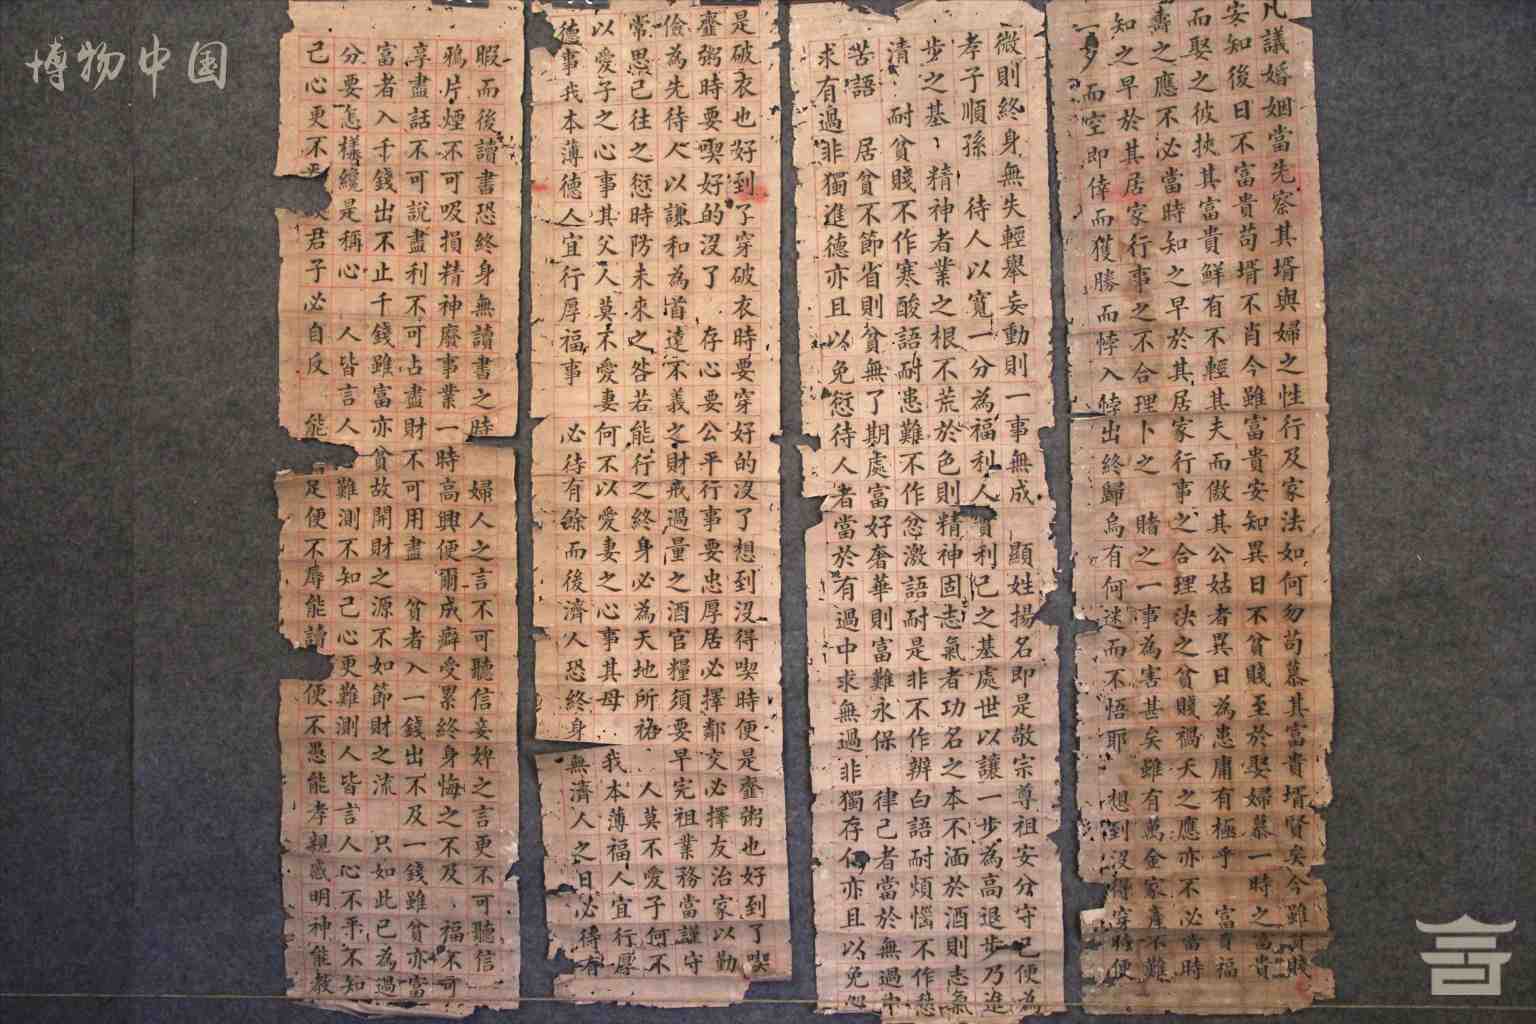 博物中国
凡議婚姻當先察其壻與婦之性行及家法如何勿苟慕其富貴壻賢矣今雖貧賤
安知後日不富貴苟壻不肖今雖富貴安知異日不貧賤至於娶婦慕一時之富貴
而娶之彼挾其富貴鮮有不輕其夫而傲其公姑者異日為患庸有極乎 富貴福
壽之應不必當時知之早於其居家行事之合理決之貧賤禍夭之應亦不必當時
知之早於其居家行事之不合理卜之 賭之一事為害甚矣雖有萬金家產不難
一 而空即倖而獲勝而悖入悖出終歸烏有何迷而不悟耶 想到沒得穿時便
是破衣也好到了穿破衣時要穿好的沒了想到沒得喫時便是虀粥也好到了喫
虀粥時要喫好的沒了 存心要公平行事要忠厚居必擇鄰交必擇友治家以勤
儉為先待人以謙和為首遠不義之財戒過量之酒官糧須要早完祖業務當謹守
常思已往之愆時防未來之咎若能行之終身必為天地所祐 人莫不愛子何不
以愛子之心事其父人莫不愛妻何不以愛妻之心事其母 我本薄福人宜行厚
德事我本薄德人宜行厚福事 必待有餘而後濟人恐終身無濟人之日必待有
暇而後讀書恐終身無讀書之時 婦人之言不可聽信妾婢之言更不可聽信
鴉片煙不可吸損精神廢事業一時高興便爾成癖受累終身悔之不及 福不可
享盡話不可說盡利不可占盡財不可用盡 貧者入一錢出不及一錢雖貧亦富
富者入千錢出不止千錢雖富亦貧故開財之源不如節財之流 只如此已為過
分要怎樣纔是稱心 人皆言人 難測不知己心更難測人皆言人心不平不知
己心更不 君子必自反 能 足便不辱能讀 便不愚能孝親感明神能教
微則終身無失輕舉妄動則一事無成 顯姓揚名即是敬宗尊祖安分守己便為
孝子順孫 待人以寬一分為福利人實利己之基處世以讓一步為高退步乃進
步之基 精神者業之根不荒於色則精神固志氣者功名之本不湎於酒則志氣
清 耐貧賤不作寒酸語耐患難不作忿激語耐是非不作辨白語耐煩惱不作愁
苦語 居貧不節省則貧無了期處富好奢華則富難永保 律己者當於無過中
求有過非獨進德亦且以免愆待人者當於有過中求無過非獨存仁亦且以免